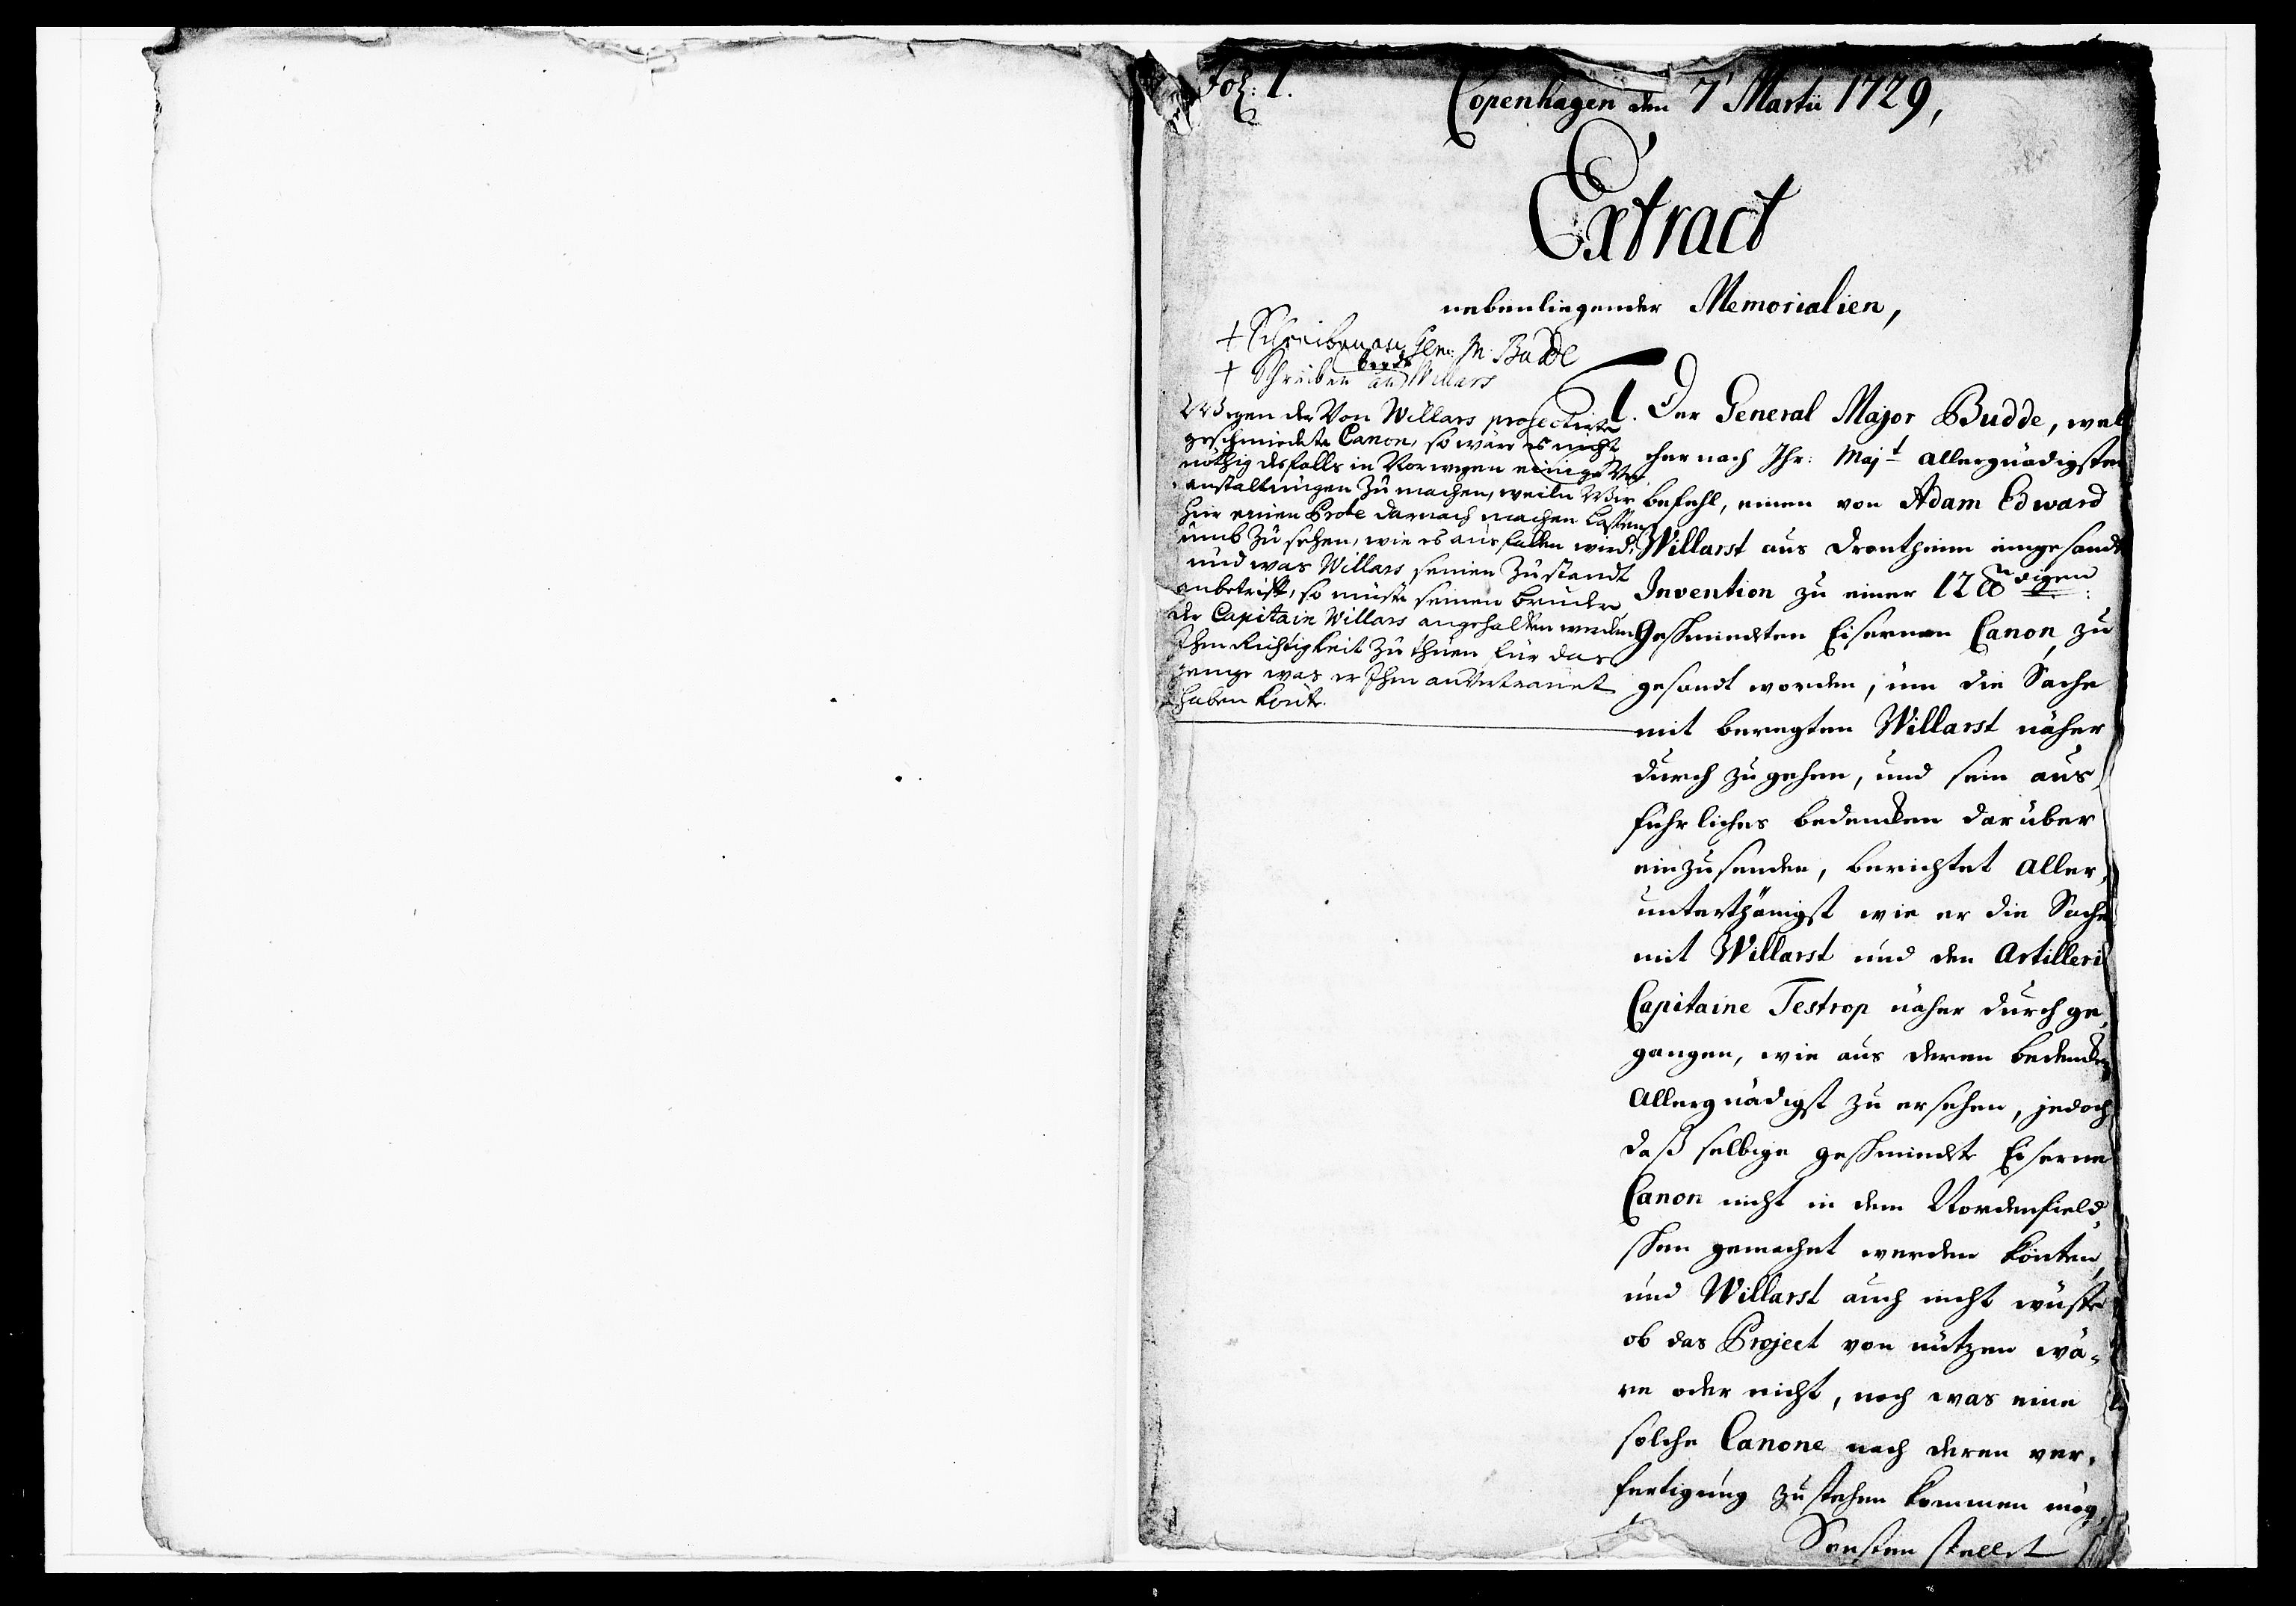 Fol: 1.
Copenhagen den 7' Martii 1729,
Extract
nebenliegender Memorialien,
+ Schreiben an Gen: M: Budde
beyde
+ Schreiben an Willars
Wegen der Von Willars projectirte
geschmiedete Canon, so wäre es nicht
nöthig desfalls in Norwegen einige Ver
anstaltungen zu machen, weiln Wir
hier einen Probe darnach machen lassen
umb zu sehen, wie es ausfallen wird;
und was Willars seinen Zustandt
anbetrifft, so müste seinen Bruder
der Capitain Willars angehalten werden
Ihm Richtigkeit zu thuen für das
jenige was er Ihm anvertrauet
haben könte.
1. Der General Major Budde, wel
cher nach Ihr: Majt allergnädigsten
befehl, einen von Adam Edward
Willarst aus Drontheim eingesandt
Invention zu einer 12 ℔digen
Geschmiedten Eisernen Canon, zu
gesandt worden, um die Sache
mit beregten Willarst näher
durch zu gehen, und sein aus,
führliches bedencken darüber
einzusenden, berichtet aller,
unterthänigst wie er die Sache
mit Willarst und den Artillerie
Capitaine Testrop näher durch ge,
gangen, wie aus deren bedencken
Allergnädigst zu ersehen, jedoch
daß selbige geschmiedte Eiserne
Canon nicht in dem Nordenfield,
schen gemachet werden könten,
und Willarst auch nicht wüste
ob das Project von nutzen wä,
re oder nicht, noch was eine
solche Canone nach deren ver,
fertigung zu stehen kommen mög,
Sonsten stellet